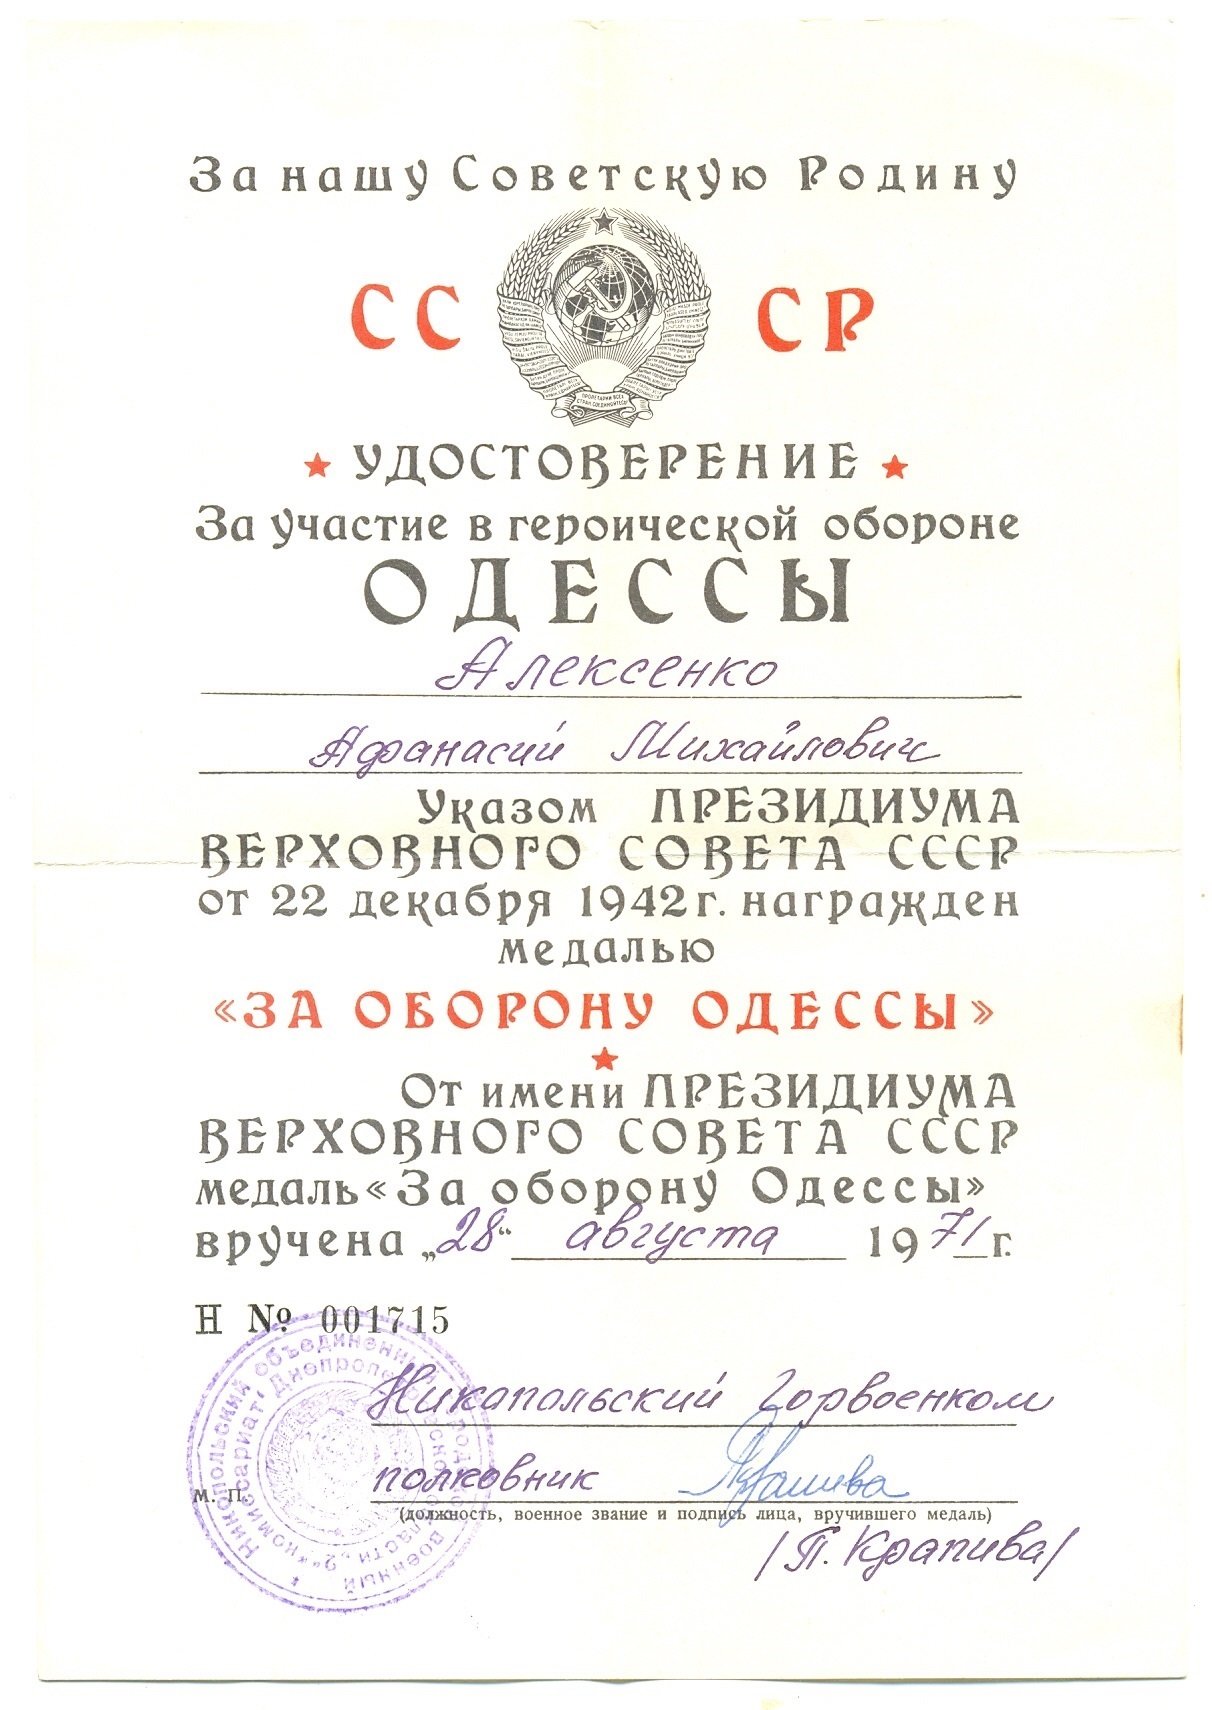 За нашу Советскую Родину
СССР
ПРОЛЕТАРИИ ВСЕХ
СТРАН, СОЕДИНЯЙТЕСЬ!
УДОСТОВЕРЕНИЕ
За участие в героической обороне
ОДЕССЫ
Алексенко
Афанасий Михайлович
Указом ПРЕЗИДИУМА
ВЕРХОВНОГО СОВЕТА СССР
от 22 декабря 1942 г. награжден
медалью
«ЗА ОБОРОНУ ОДЕССЫ»
От имени ПРЕЗИДИУМА
ВЕРХОВНОГО СОВЕТА СССР
медаль «За оборону Одессы»
вручена „28“ августа 1971 г.
Н № 001715
Никапольский Горвоенком
полковник Крапива
м. п.
(должность, военное звание и подпись лица, вручившего медаль)
/П. Крапива/
Никопольский объединенный городской военный
комиссариат Днепропетровской области „2“